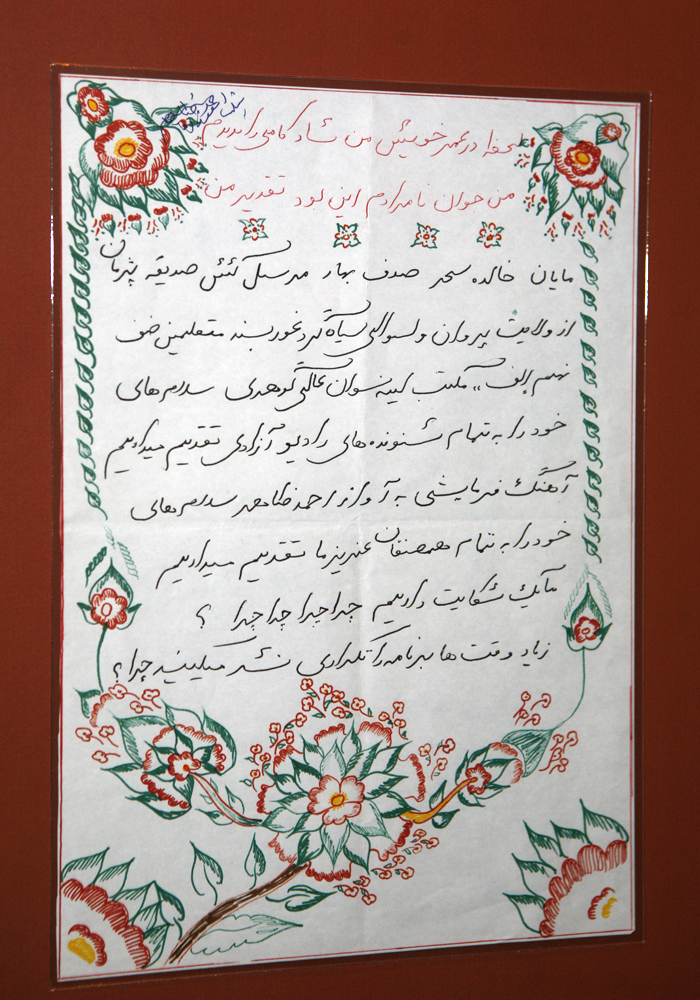 لحظه در عمر خویش من شاد کامی را ندیدم
من جوان نامرادم این بود تقدیر من
مایان خالده سحر صدف بهار مدرسل گلشن صدیقه پژمان
از ولایت پروان ولسوالی سیاه گرد غوربند متعلمین صنف
نهم الف،، مکتب لیسه نسوان عالی سلام های
خود را به تمام شنونده های رادیو آزادی تقدیم میداریم
آهنگ فرمایشی به آواز احمد ظاهر سلام های
خود را به تمام همصنفان عزیز ما تقدیم میداریم
ما یک شکایت داریم چرا چرا چرا چرا ؟
زیاد وقت ها برنامه را تکراری نشر میکنید چرا ؟